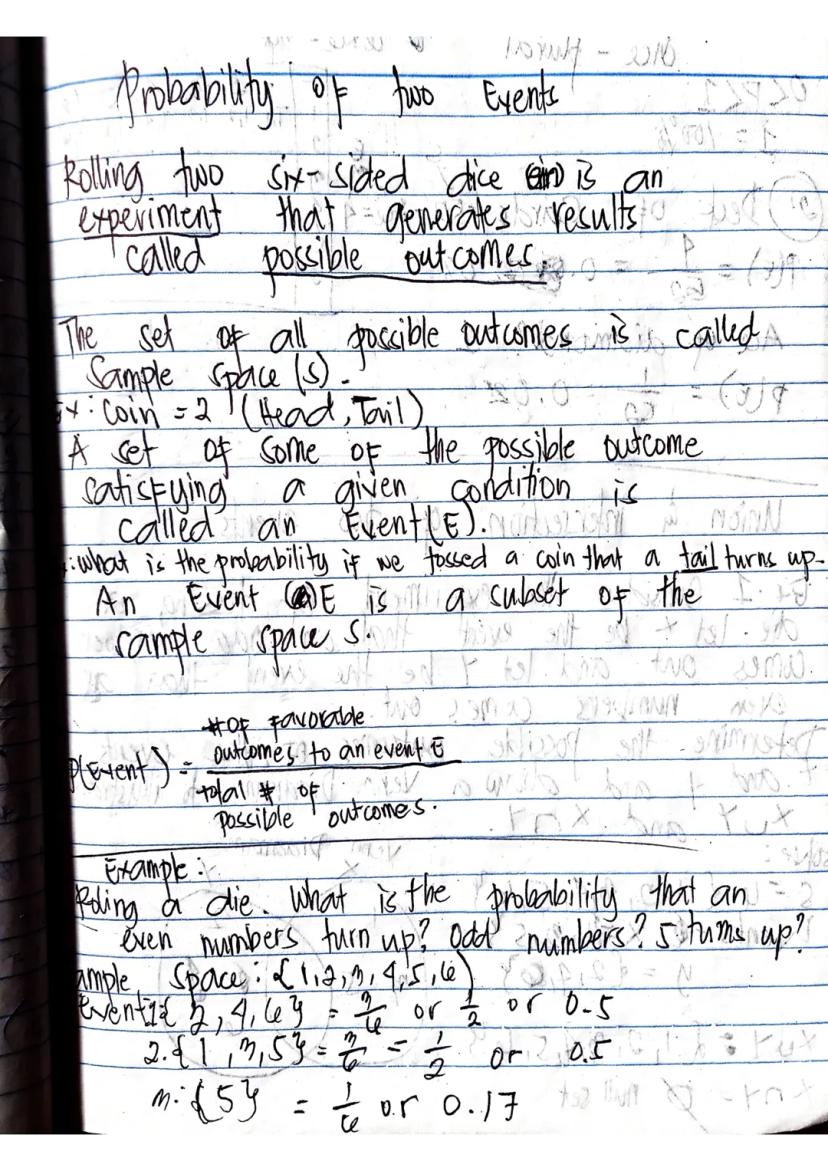 Probability of two Events
Rolling two six-sided dice is an
experiment that generates results
called possible outcomes.
The set of all possible outcomes is called
Sample space (s).
Ex: Coin = 2 (Head, Tail)
A set of some of the possible outcome
satisfying a given condition is
called an Event (E).
: what is the probability if we tossed a coin that a tail turns up.
An Event E is a subset of the
sample space s.
P(Event) = # of favorable outcomes to an event E
total # of
possible outcomes.
Example:
Rolling a die. What is the probability that an
even numbers turn up? Odd numbers? 5 turns up?
ample Space: {1,2,3,4,5,6)
Event 1{ 2,4,6} = 3/6 or 1/2 or 0.5
2.{1,3,5} = 3/6 = 1/2 or 0.5
3:{5} = 1/6 or 0.17